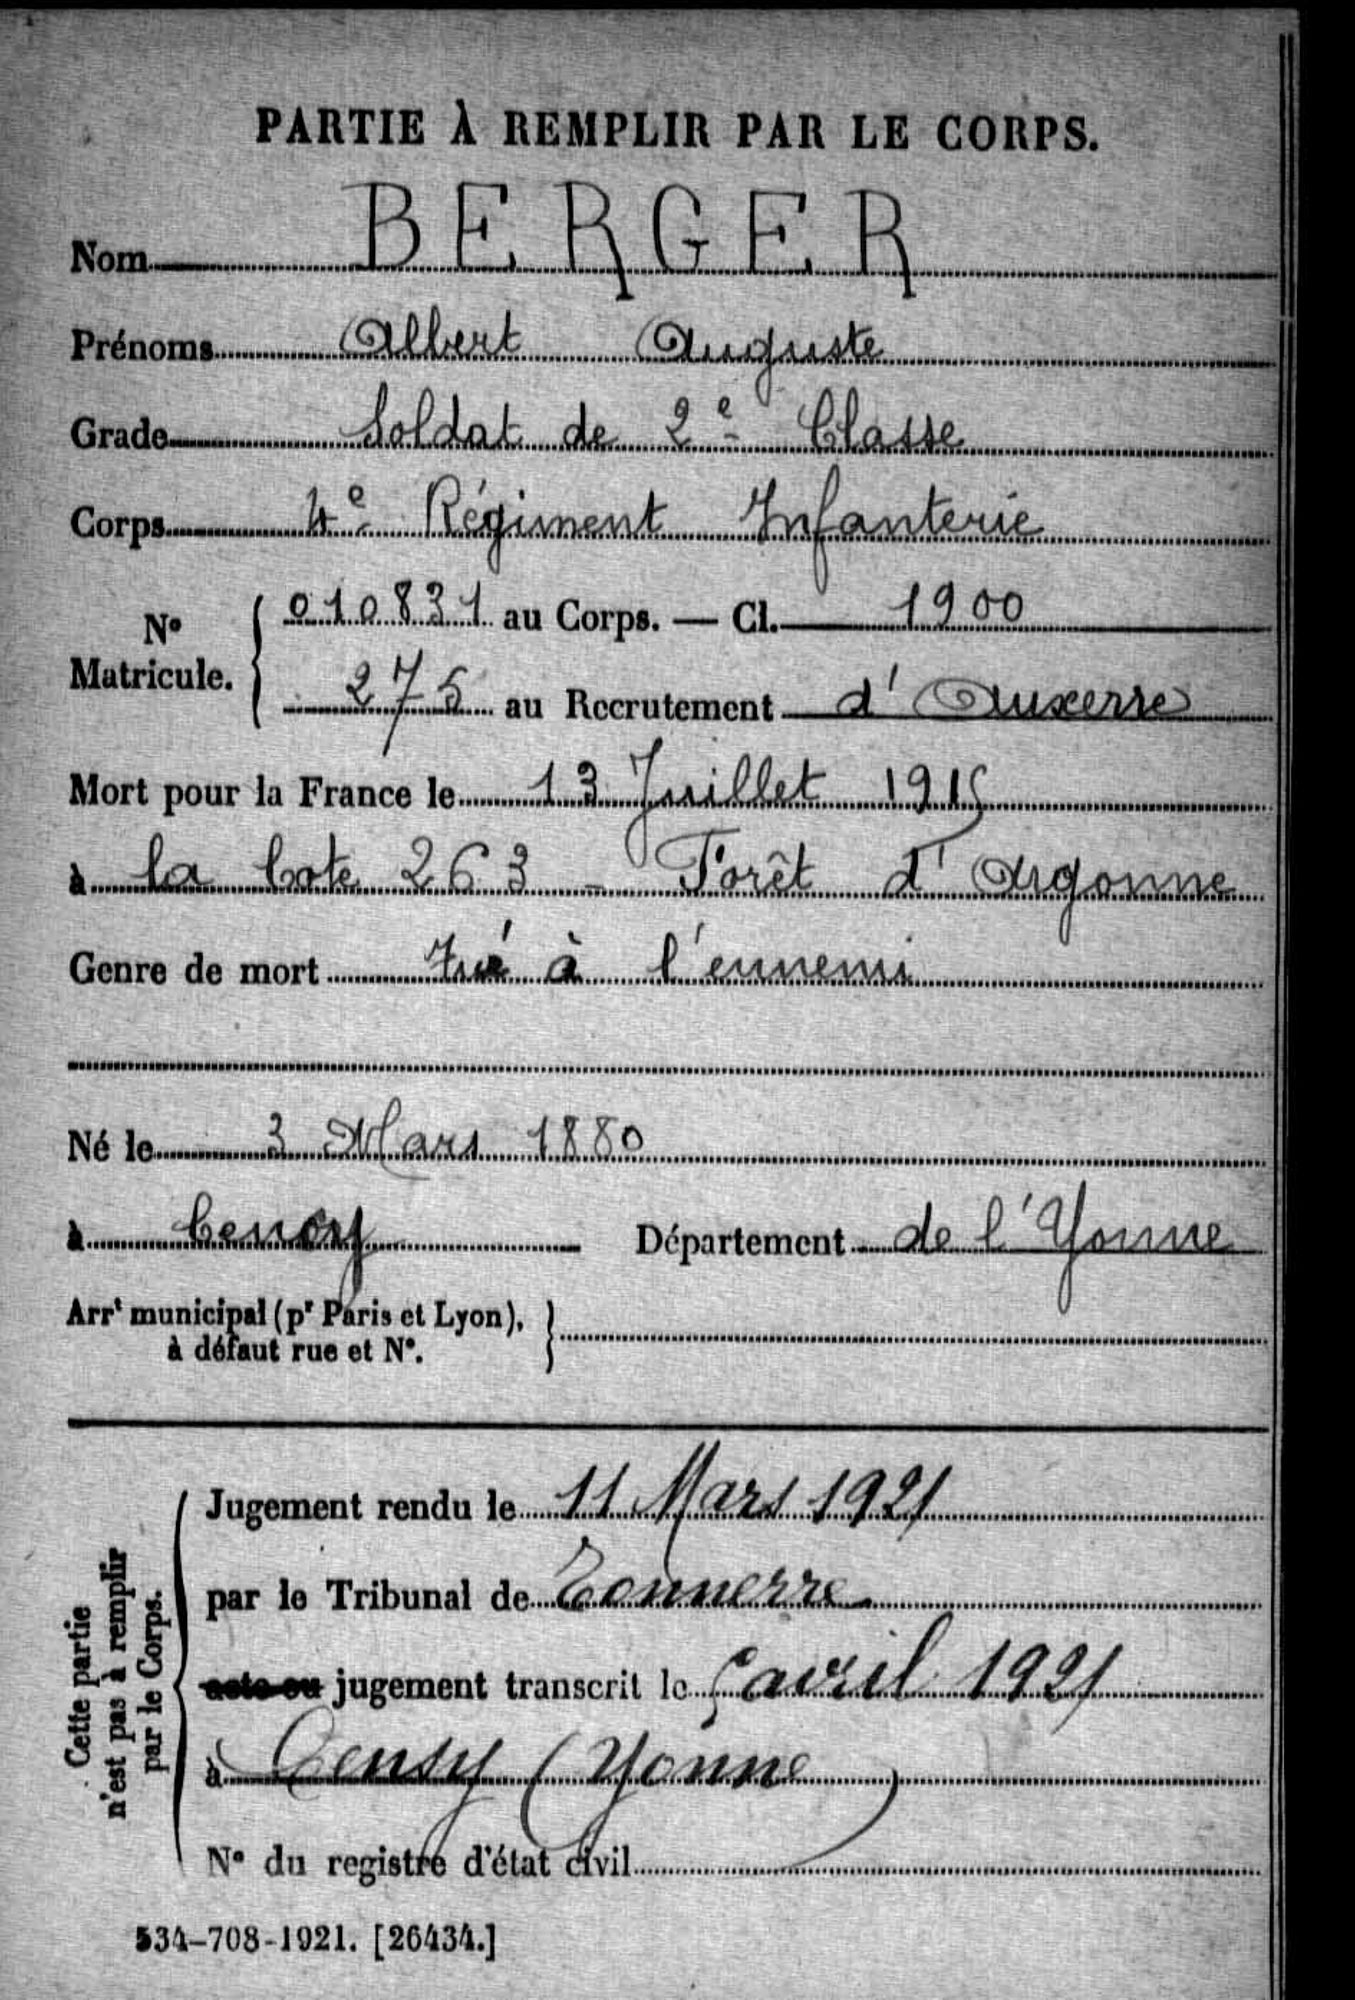 PARTIE À REMPLIR PAR LE CORPS.
Nom BERGER
Prénoms Albert Auguste
Grade Soldat de 2e Classe
Corps 4e Régiment Infanterie
No Matricule. { 010831 au Corps. — Cl. 1900
275 au Recrutement d'Auxerre
Mort pour la France le 13 Juillet 1915
à la Cote 263 - Forêt d'Argonne
Genre de mort Tué à l'ennemi
Né le 3 Mars 1880
à Censy Département de l'Yonne
Arrt municipal (pr Paris et Lyon), }
à défaut rue et No.
Cette partie
n'est pas à remplir
par le Corps.
Jugement rendu le 11 Mars 1921
par le Tribunal de Tonnerre
acte ou jugement transcrit le 5 avril 1921
à Censy (Yonne)
No du registre d'état civil
534-708-1921. [26434.]